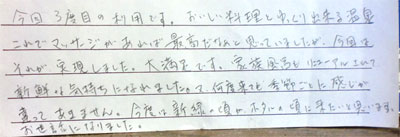 今回3度目の利用です。おいしい料理とゆっくり出来る温泉
これでマッサージがあれば最高だなんて思っていましたが、今回は
それが実現しました。大満足です。家族風呂もリニューアルされて
新鮮な気持ちになれましたので何度来ても季節ごとに感じが
違ってあきません。今度は新緑の頃かホタルの頃に来たいと思います。
お世話になりました。